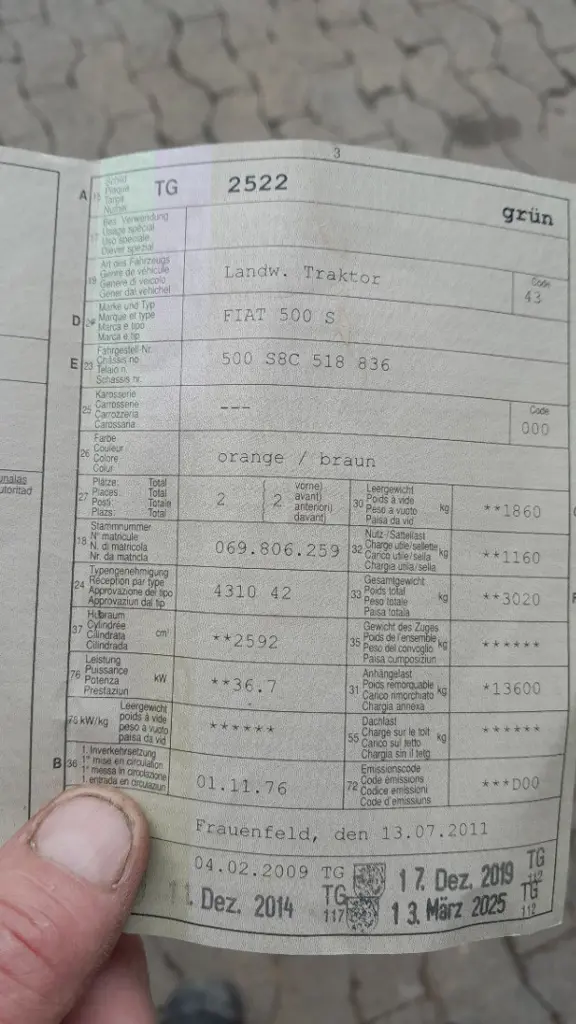 3
A 15 Schild Plaque Targa Numer TG 2522 grün
17 Bes. Verwendung Usage spécial Uso speciale Diever spezial
19 Art des Fahrzeugs Genre de véhicule Genere di veicolo Gener dal vehichel Landw. Traktor Code 43
D Marke und Typ Marque et type Marca e tipo Marca e tip FIAT 500 S
E 23 Fahrgestell-Nr. Châssis no Telaio n. Schassis nr. 500 S8C 518 836
25 Karosserie Carrosserie Carrozzeria Carossaria --- Code 000
26 Farbe Couleur Colore Colur orange / braun
27 Plätze: Total Places: Total Posti: Totale Plazs: Total 2 2 vorne) avant) anteriori) davant) 30 Leergewicht Poids à vide Peso a vuoto Paisa da vid kg **1860
18 Stammnummer N° matricule N. di matricola Nr. da matricla 069.806.259 32 Nutz-/Sattellast Charge utile/sellette Carico utile/sella Chargia utila/sella kg **1160
24 Typengenehmigung Réception par type Approvazione del tipo Approvaziun dal tip 4310 42 33 Gesamtgewicht Poids total Peso totale Paisa totala kg **3020
37 Hubraum Cylindrée Cilindrata Cilindrada cm³ **2592 35 Gewicht des Zuges Poids de l'ensemble Peso del convoglio Paisa cumposiziun kg ******
76 Leistung Puissance Potenza Prestaziun kW **36.7 31 Anhängelast Poids remorquable Carico rimorchiato Chargia annexa kg *13600
78 kW/kg Leergewicht poids à vide peso a vuoto paisa da vid ****** 55 Dachlast Charge sur le toit Carico sul tetto Chargia sin il tetg kg ******
B 36 1. Inverkehrsetzung 1re mise en circulation 1a messa in circolazione 1. entrada en circulaziun 01.11.76 72 Emissionscode Code émissions Codice emissioni Code d'emissiuns ***D00
Frauenfeld, den 13.07.2011
04.02.2009 TG 17. Dez. 2019 TG 112
11. Dez. 2014 TG 117 13. März 2025 TG 112